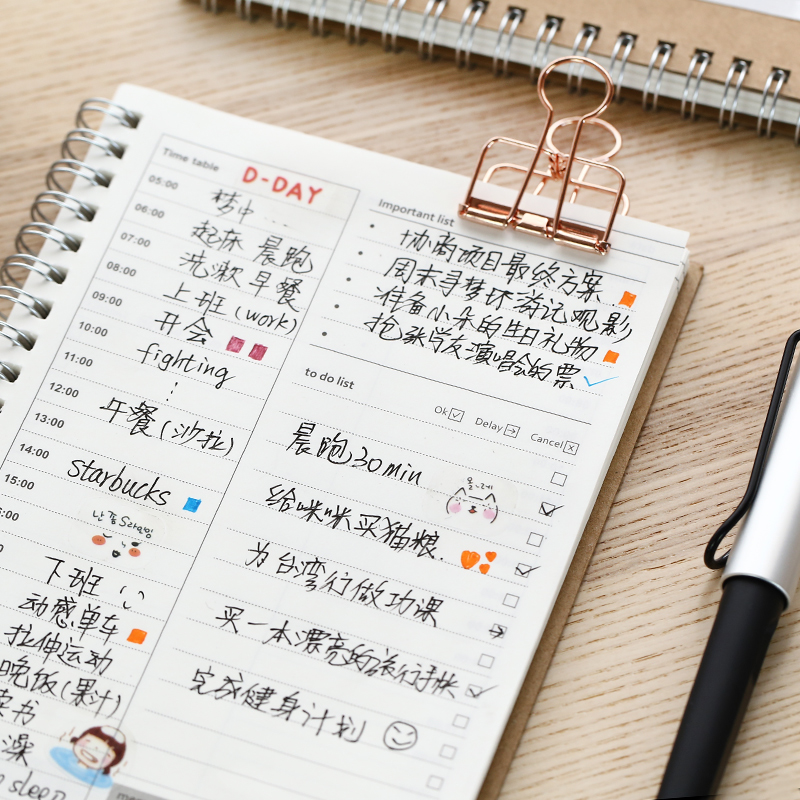 Time table
D-DAY
05:00
梦中...
06:00
起床 晨跑
07:00
洗漱 早餐
08:00
上班 (work)
09:00
开会
10:00
fighting
11:00
12:00
午餐 (沙拉)
13:00
14:00
starbucks
15:00
:00
下班
动感单车
拉伸运动
晚饭 (果汁)
读书
澡
sleep
Important list
• 协商项目最终方案
• 周末寻梦环游记观影
• 准备小朵的生日礼物
• 抢张学友演唱会的票
to do list
Ok Delay Cancel
晨跑30min
给咪咪买猫粮.
为台湾行做功课
买一本漂亮的旅行手帐
完成健身计划